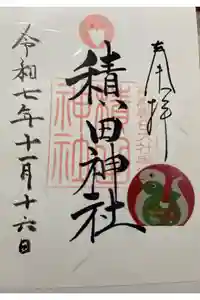 奉拝
積田神社
令和七年十一月十六日
積田
神社